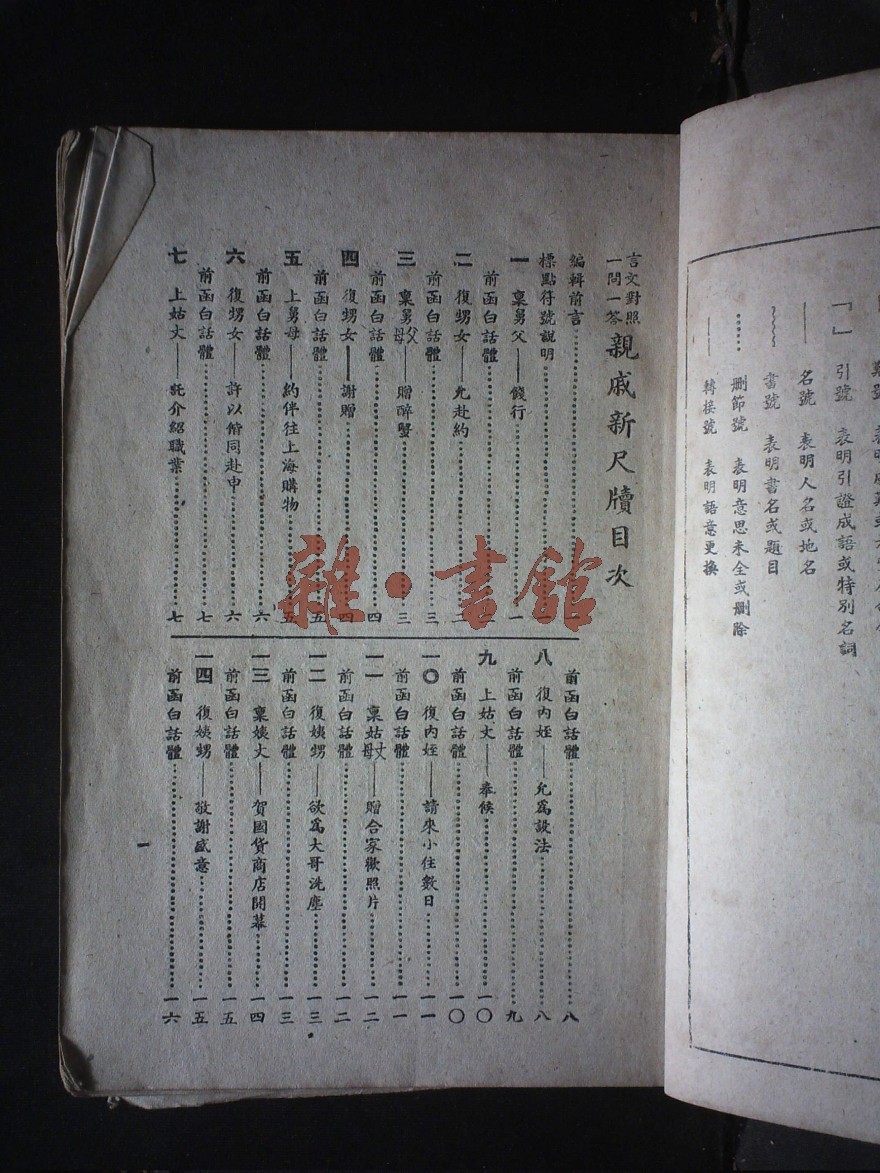 「」 引號 表明引證成語或特別名詞
—— 名號 表明人名或地名
﹏﹏ 書號 表明書名或題目
…… 刪節號 表明意思未全或刪除
—— 轉接號 表明語意更換
言文對照
一問一答
親戚新尺牘目次
編輯前言
標點符號說明
一 稟舅父——餞行……一
前函白話體
二 復甥女——允赴約……二
前函白話體……三
三 稟舅父母——贈醉蟹……三
前函白話體……四
四 復甥女——謝贈……四
前函白話體……五
五 上舅母——約伴往上海購物……五
前函白話體……六
六 復甥女——許以偕同赴申……六
前函白話體……七
七 上姑丈——託介紹職業……七
前函白話體……八
八 復內姪——允爲設法……八
前函白話體……九
九 上姑丈——奉候……一〇
前函白話體……一〇
一〇 復內姪——請來小住數日……一一
前函白話體……一一
一一 稟姑丈母——贈合家歡照片……一二
前函白話體……一二
一二 復姨甥——欲爲大哥洗塵……一三
前函白話體……一三
一三 稟姨丈——賀國貨商店開幕……一四
前函白話體……一五
一四 復姨甥——敬謝盛意……一五
前函白話體……一六
一
雜·書館